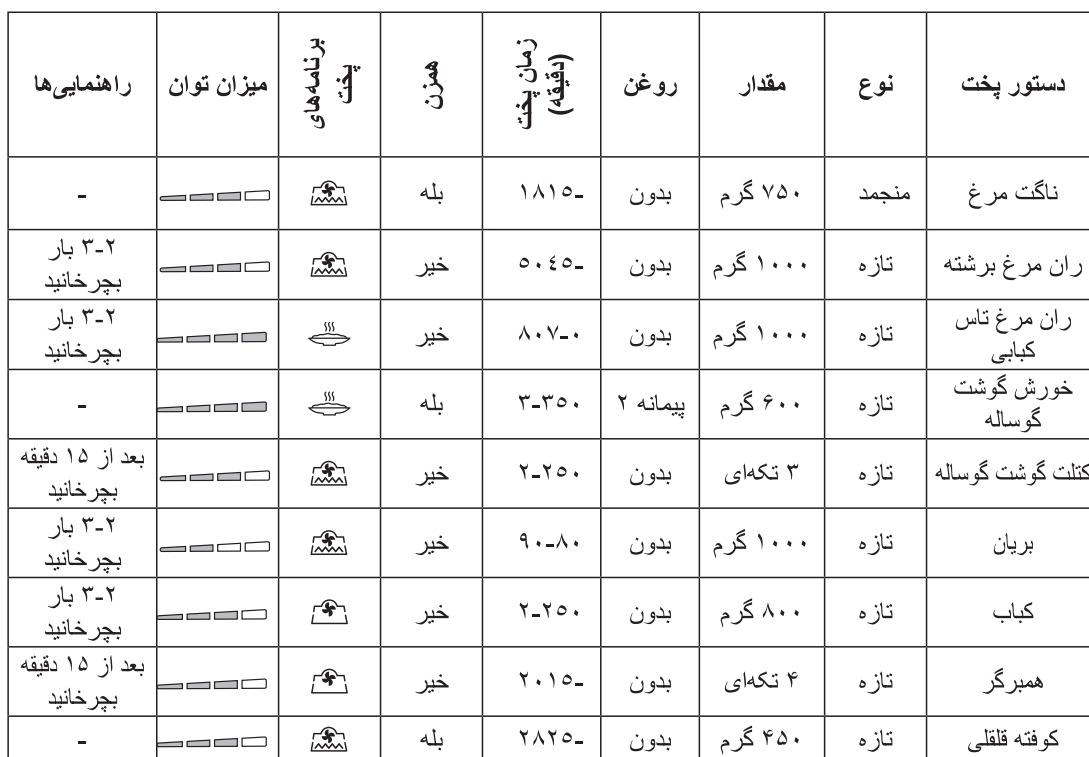 دستور پخت نوع مقدار روغن زمان پخت (دقیقه) همزن برنامه‌های پخت میزان توان راهنمایی‌ها
ناگت مرغ منجمد ۷۵۰ گرم بدون ١٨١٥- بله -
ران مرغ برشته تازه ۱۰۰۰ گرم بدون ٥٠٤٥- خیر ۳-۲ بار بچرخانید
ران مرغ تاس کبابی تازه ۱۰۰۰ گرم بدون ٨٠٧-٠ خیر ۳-۲ بار بچرخانید
خورش گوشت گوساله تازه ۶۰۰ گرم ۲ پیمانه ٣-٣٥٠ بله -
کتلت گوشت گوساله تازه ۳ تکه‌ای بدون ٢-٢٥٠ خیر بعد از ۱۵ دقیقه بچرخانید
بریان تازه ۱۰۰۰ گرم بدون ٩٠-٨٠ خیر ۳-۲ بار بچرخانید
کباب تازه ۸۰۰ گرم بدون ٢-٢٥٠ خیر ۳-۲ بار بچرخانید
همبرگر تازه ۴ تکه‌ای بدون ٢٠١٥- خیر بعد از ۱۵ دقیقه بچرخانید
کوفته قلقلی تازه ۴۵۰ گرم بدون ٢٨٢٥- بله -